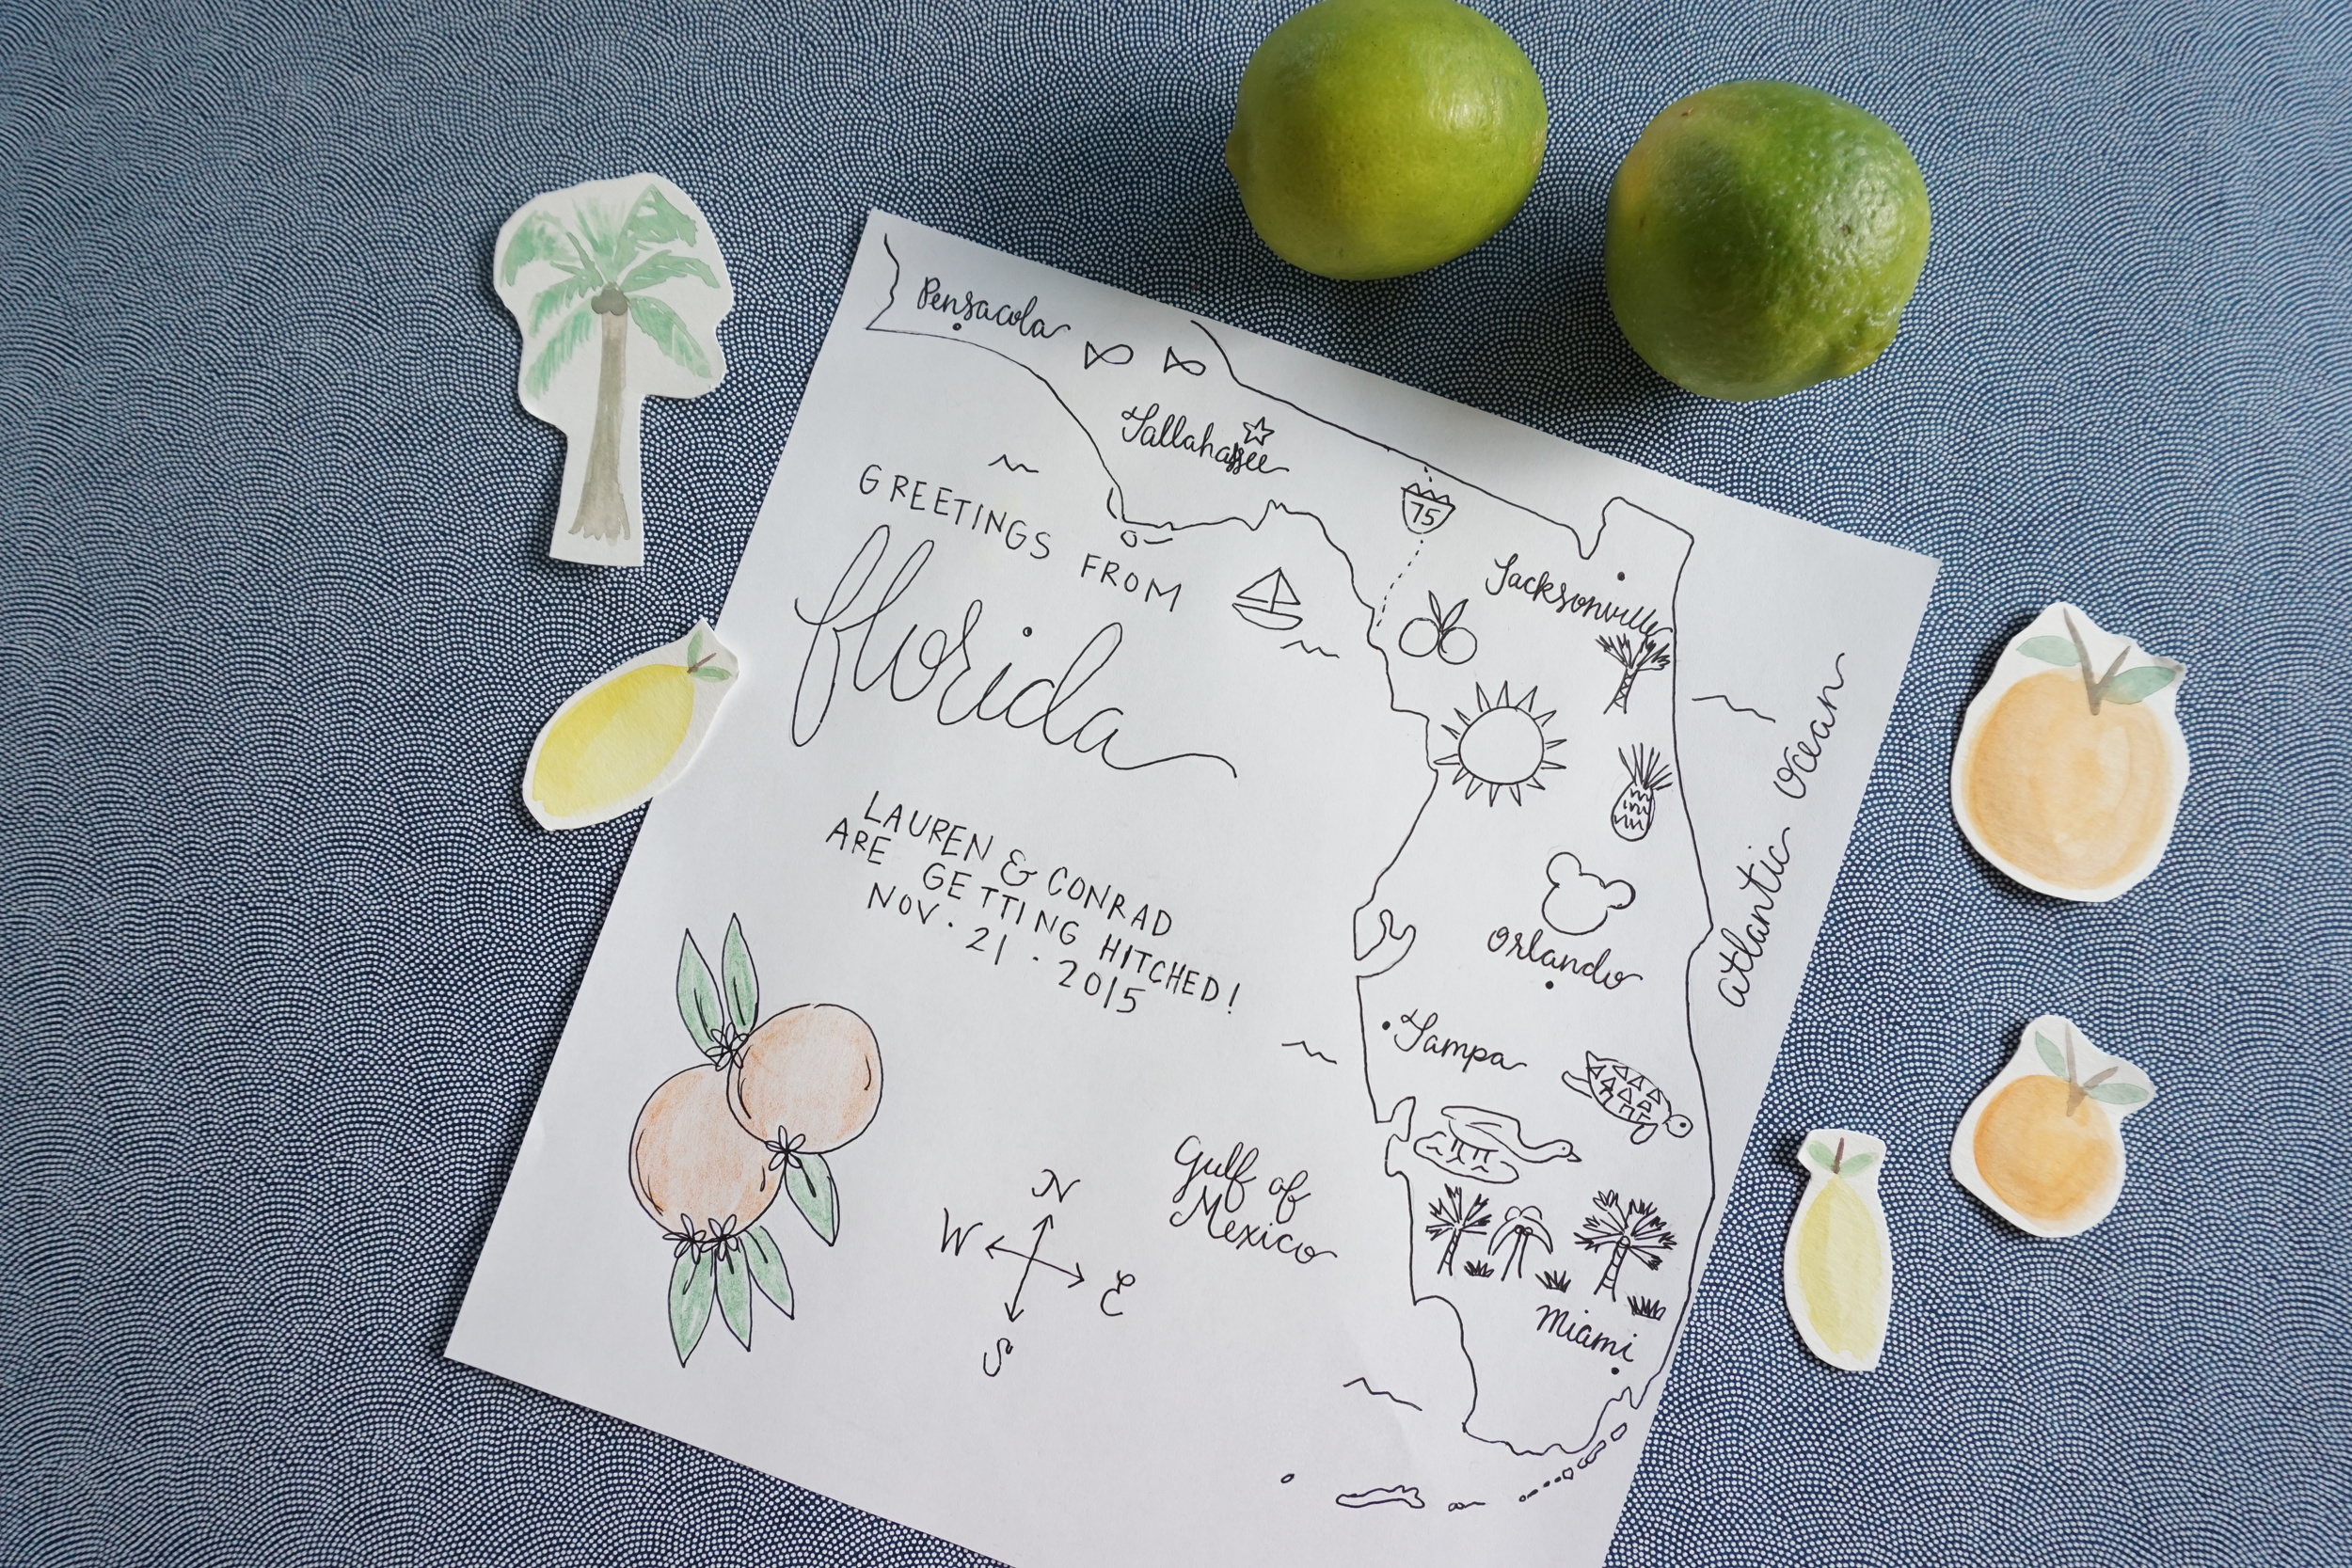 Pensacola
Tallahassee
75
GREETINGS FROM
florida
Jacksonville
LAUREN & CONRAD
ARE GETTING HITCHED!
NOV. 21 · 2015
atlantic ocean
Orlando
Tampa
Gulf of
Mexico
N
W
E
S
Miami